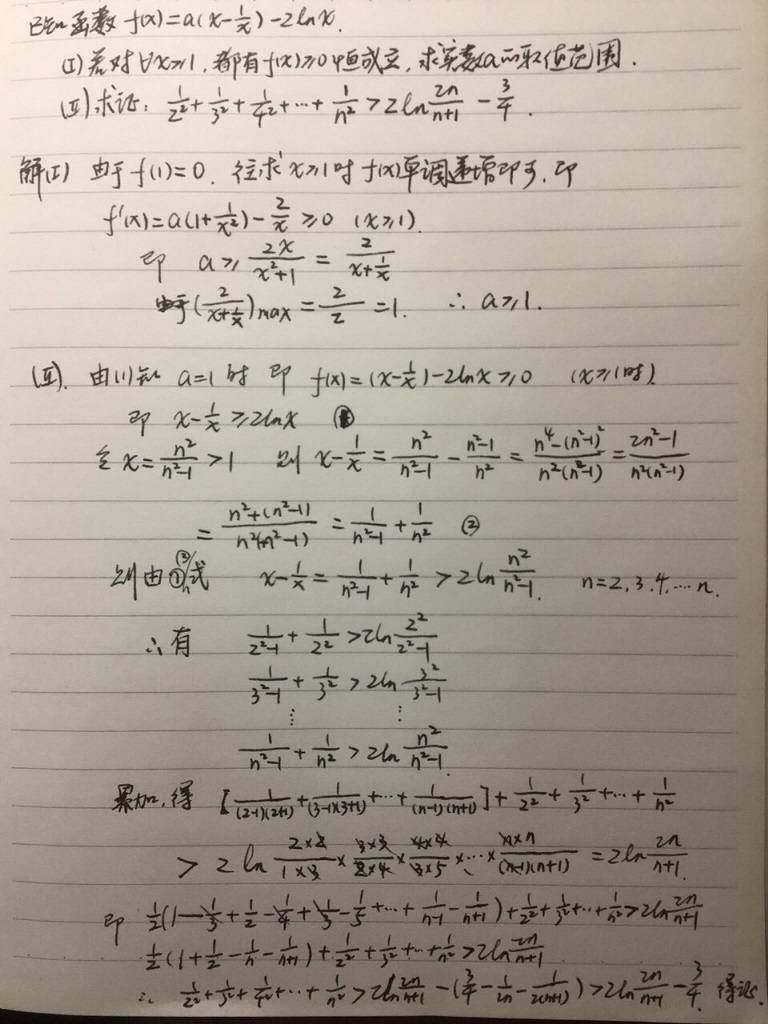 已知函数 f(x)=a(x-1/x)-2lnx.
(I) 若对∀x≥1, 都有f(x)≥0恒成立, 求实数a的取值范围.
(II) 求证: 1/2²+1/3²+1/4²+…+1/n²>2ln 2n/(n+1) - 3/4.
解(I) 由于 f(1)=0. 往求 x≥1时 f(x)单调递增即可, 即
f'(x)=a(1+1/x²)-2/x≥0 (x≥1).
即 a≥2x/(x²+1)=2/(x+1/x)
由于(2/(x+1/x))max=2/2=1. ∴ a≥1.
(II). 由(1)知 a=1时 即 f(x)=(x-1/x)-2lnx≥0 (x≥1时)
即 x-1/x≥2lnx ①
令 x=n²/(n²-1)>1 则 x-1/x=n²/(n²-1)-(n²-1)/n²=(n⁴-(n²-1)²)/(n²(n²-1))=(2n²-1)/(n²(n²-1))
=(n²+(n²-1))/(n²(n²-1))=1/(n²-1)+1/n² ②
则由①②式 x-1/x=1/(n²-1)+1/n²>2ln n²/(n²-1). n=2,3,4,…n.
∴有 1/(2²-1)+1/2²>2ln 2²/(2²-1)
1/(3²-1)+1/3²>2ln 3²/(3²-1)
⋮ ⋮
1/(n²-1)+1/n²>2ln n²/(n²-1).
累加, 得 [1/((2-1)(2+1))+1/((3-1)(3+1))+…+1/((n-1)(n+1))]+1/2²+1/3²+…+1/n²
>2ln (2×2)/(1×3)×(3×3)/(2×4)×(4×4)/(3×5)×…×(n×n)/((n-1)(n+1))=2ln 2n/(n+1).
即 1/2(1-1/3+1/2-1/4+1/3-1/5+…+1/(n-1)-1/(n+1))+1/2²+1/3²+…+1/n²>2ln 2n/(n+1)
1/2(1+1/2-1/n-1/(n+1))+1/2²+1/3²+…+1/n²>2ln 2n/(n+1).
∴ 1/2²+1/3²+1/4²+…+1/n²>2ln 2n/(n+1)-(3/4-1/2n-1/(2(n+1)))>2ln 2n/(n+1)-3/4. 得证.